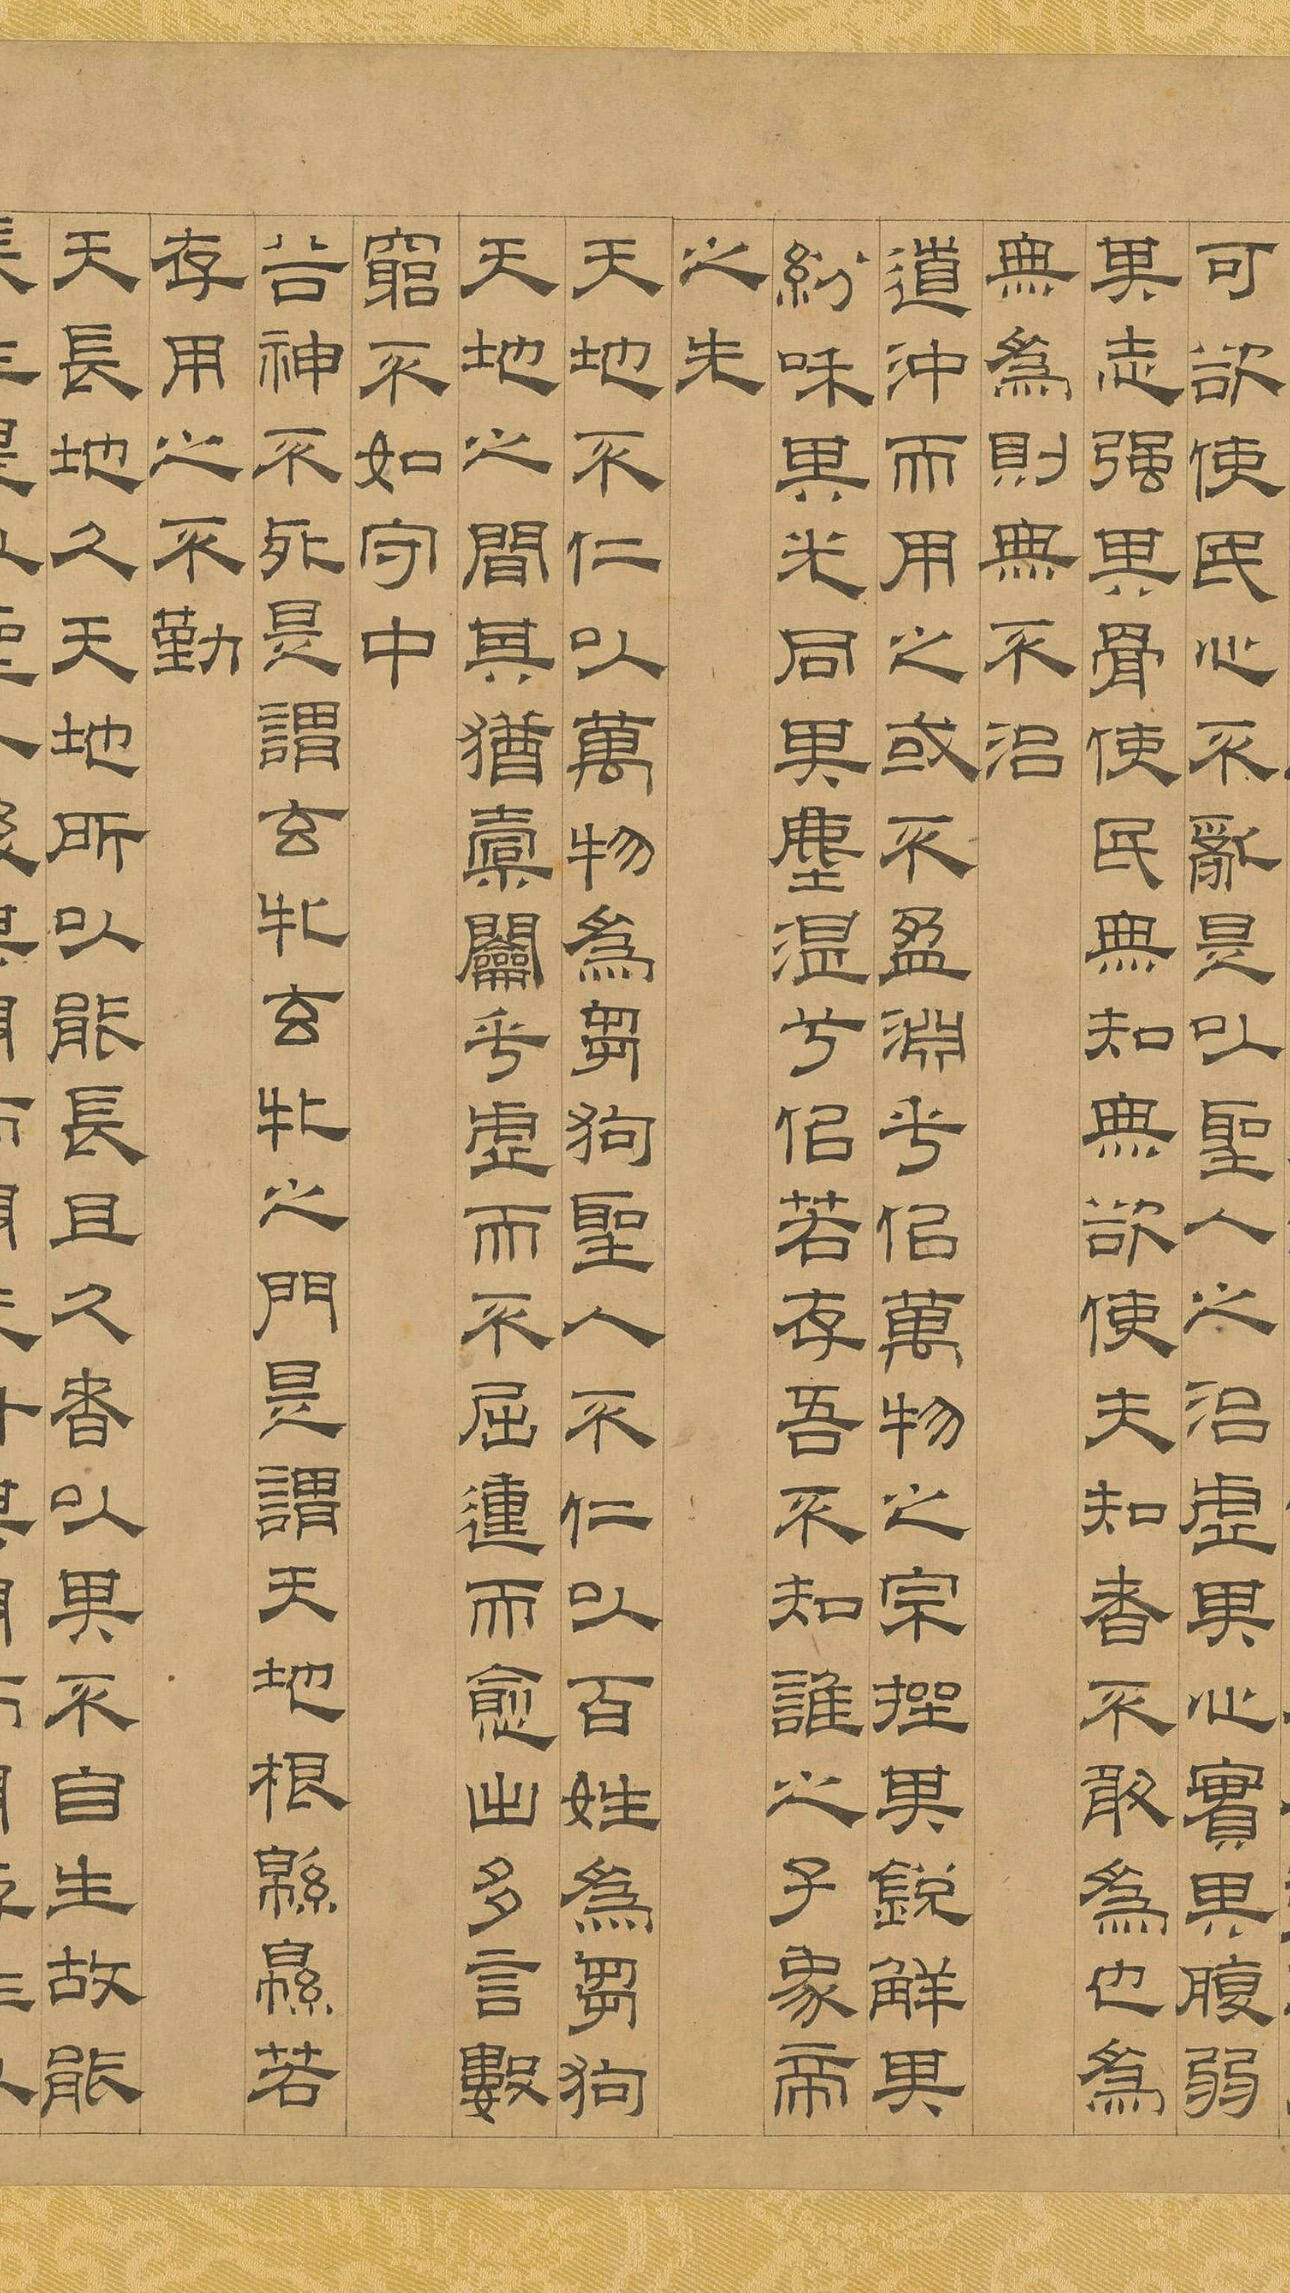 可欲使民心不亂是以聖人之治虛其心實其腹弱
其志强其骨使民無知無欲使夫知者不敢為也為
無為則無不治
道沖而用之或不盈淵乎佀萬物之宗挫其鋭解其
紛和其光同其塵湛兮佀若存吾不知誰之子象帝
之先
天地不仁以萬物為芻狗聖人不仁以百姓為芻狗
天地之間其猶橐籥乎虛而不屈動而愈出多言數
窮不如守中
谷神不死是謂玄牝玄牝之門是謂天地根緜緜若
存用之不勤
天長地久天地所以能長且久者以其不自生故能